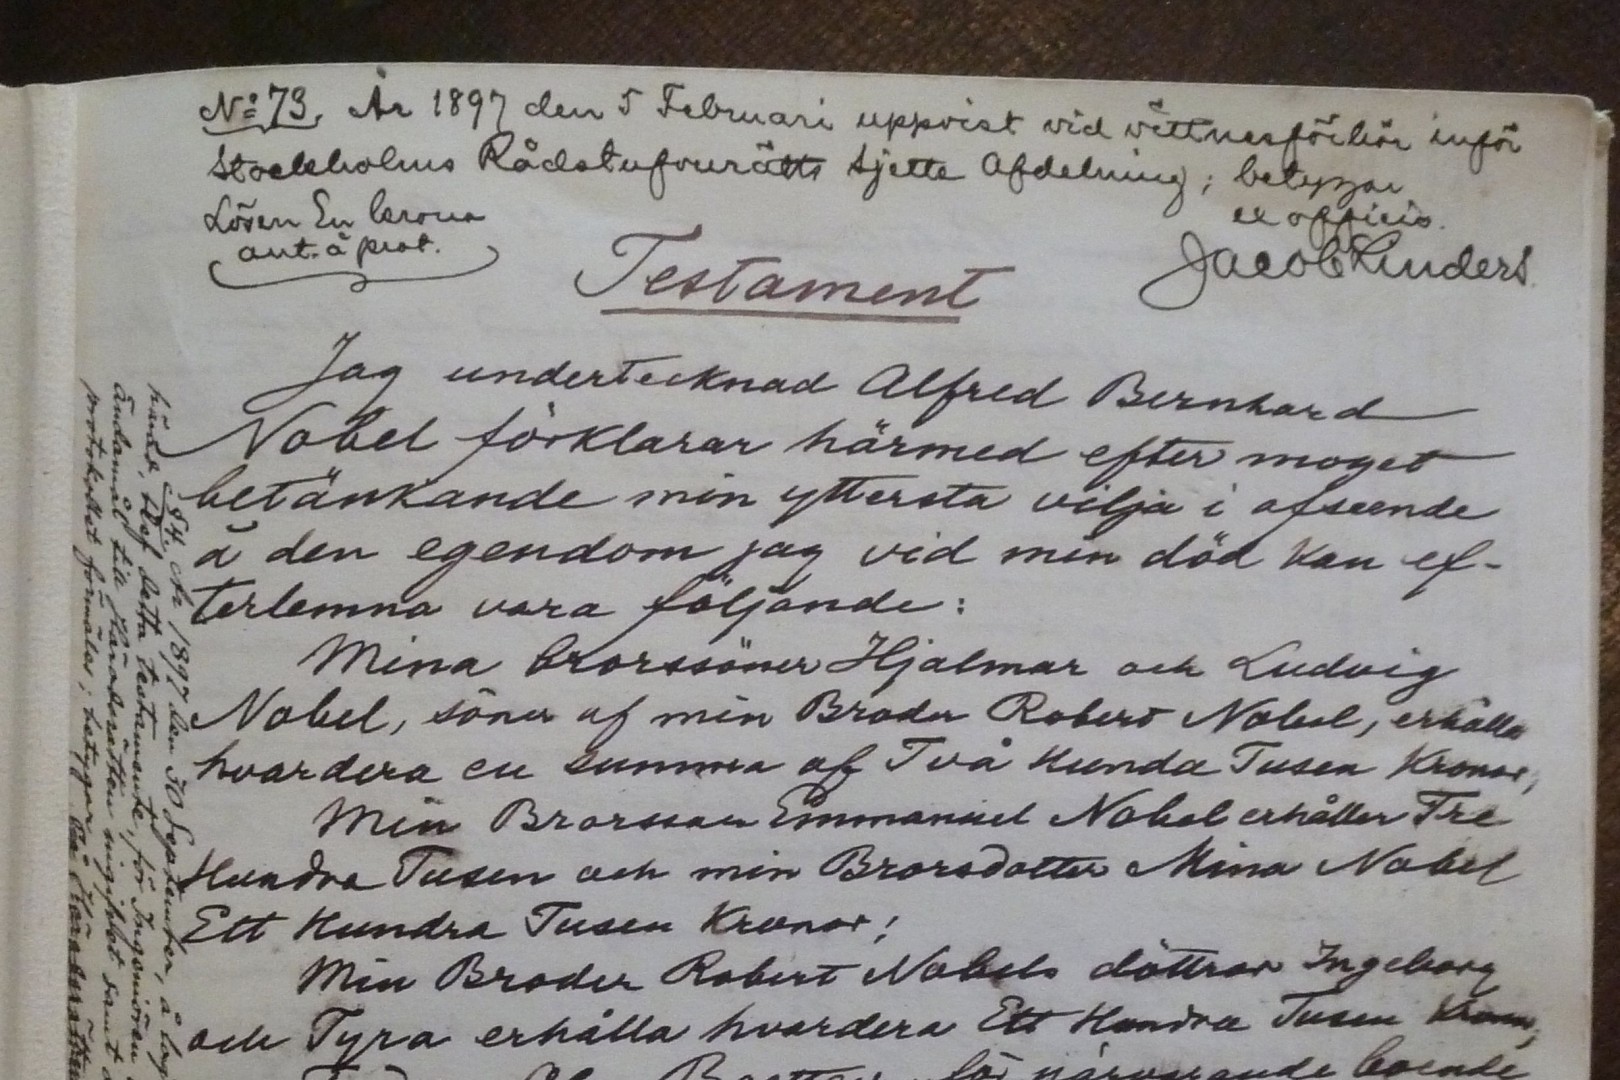 No 73. År 1897 den 5 Februari uppvist vid vittnesförhör inför
Stockholms Rådstufvurätts sjette Afdelning; betygar
ex officio.
Lösen En krona
ant. å prot.
Jacob Linders.
Testament
Jag undertecknad Alfred Bernhard
Nobel förklarar härmed efter moget
betänkande min yttersta vilja i afseende
å den egendom jag vid min död kan ef-
terlemna vara följande:
Mina Brorssöner Hjalmar och Ludvig
Nobel, söner af min Broder Robert Nobel, erhålla
hvardera en summa af Två Hundra Tusen Kronor;
Min Brorsson Emmanuel Nobel erhåller Tre
Hundra Tusen och min Brorsdotter Mina Nobel
Ett Hundra Tusen Kronor;
Min Broder Robert Nobels döttrar Ingeborg
och Tyra erhålla hvardera Ett Hundra Tusen Kronor;
för närvarande boende
1897 den 30 September, å
detta testamente, för Ingeniören
till Häradsrätten ingifvet samt
protokollet förmäler; betygar. På Häradsrättens